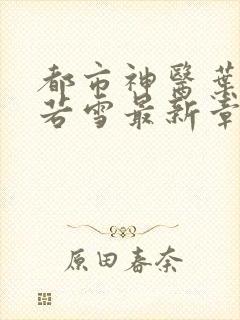 都市神醫葉
若雪最新章
原田春奈